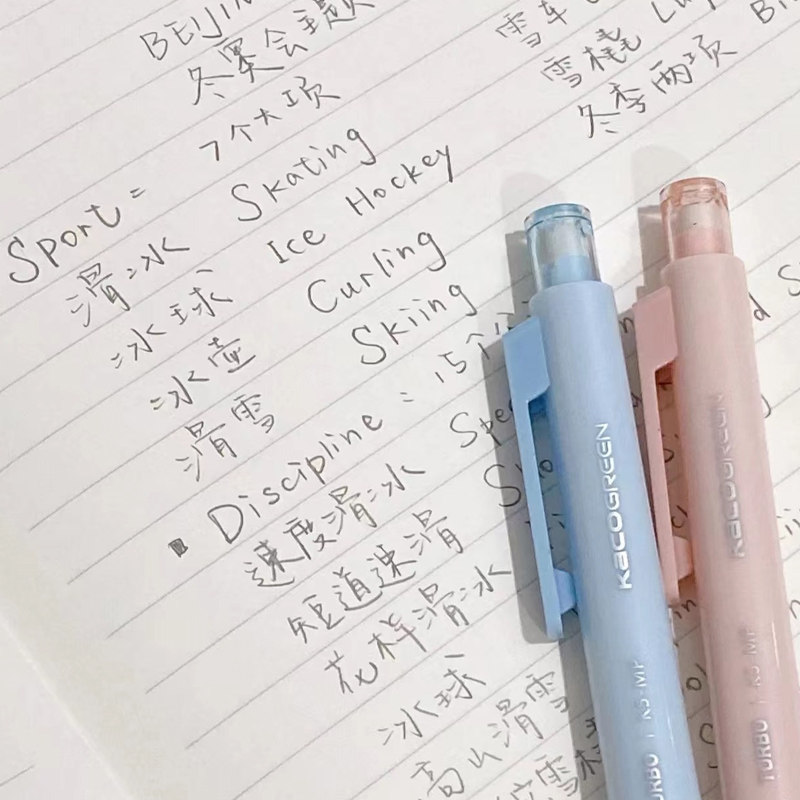 BEIJIN
冬奥会主题
7个大项
Sport=
滑冰 Skating
冰球 Ice Hockey
冰壶 Curling
滑雪 Skiing
Discipline = 15个
速度滑冰 Spe
短道速滑 Sho
花样滑冰
冰球
高山滑雪
雪车
雪橇 Lu
冬季两项 Bi
KACOGREEN
TURBO K5 MP
KACOGREEN
TURBO K5 MP